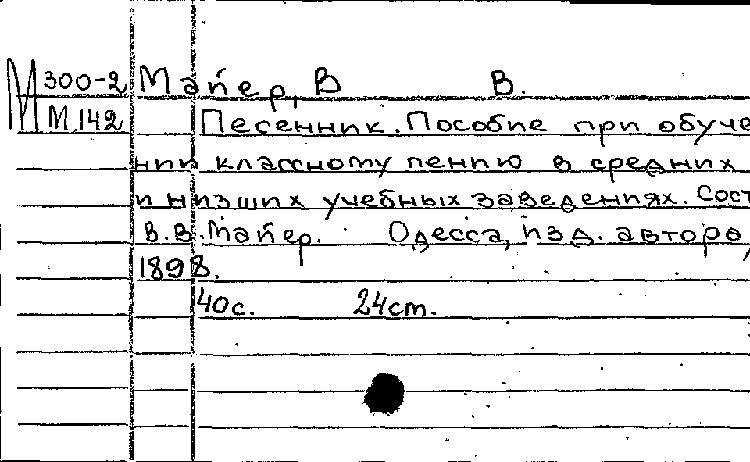 М 300-2 Майер, В В.
М 142 Песенник. Пособие при обуче
нии классному пению в средних
и низших учебных заведениях. Сост
В.В. Майер. Одесса, изд. автора,
1898.
40с. 24cm.